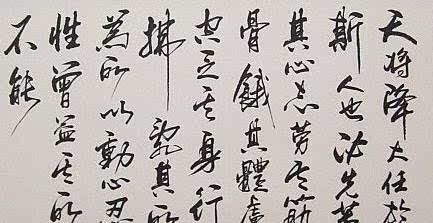 天將降大任於
斯人也必先苦
其心志勞其筋
骨餓其體膚
空乏其身行
拂亂其所
為所以動心忍
性曾益其所
不能